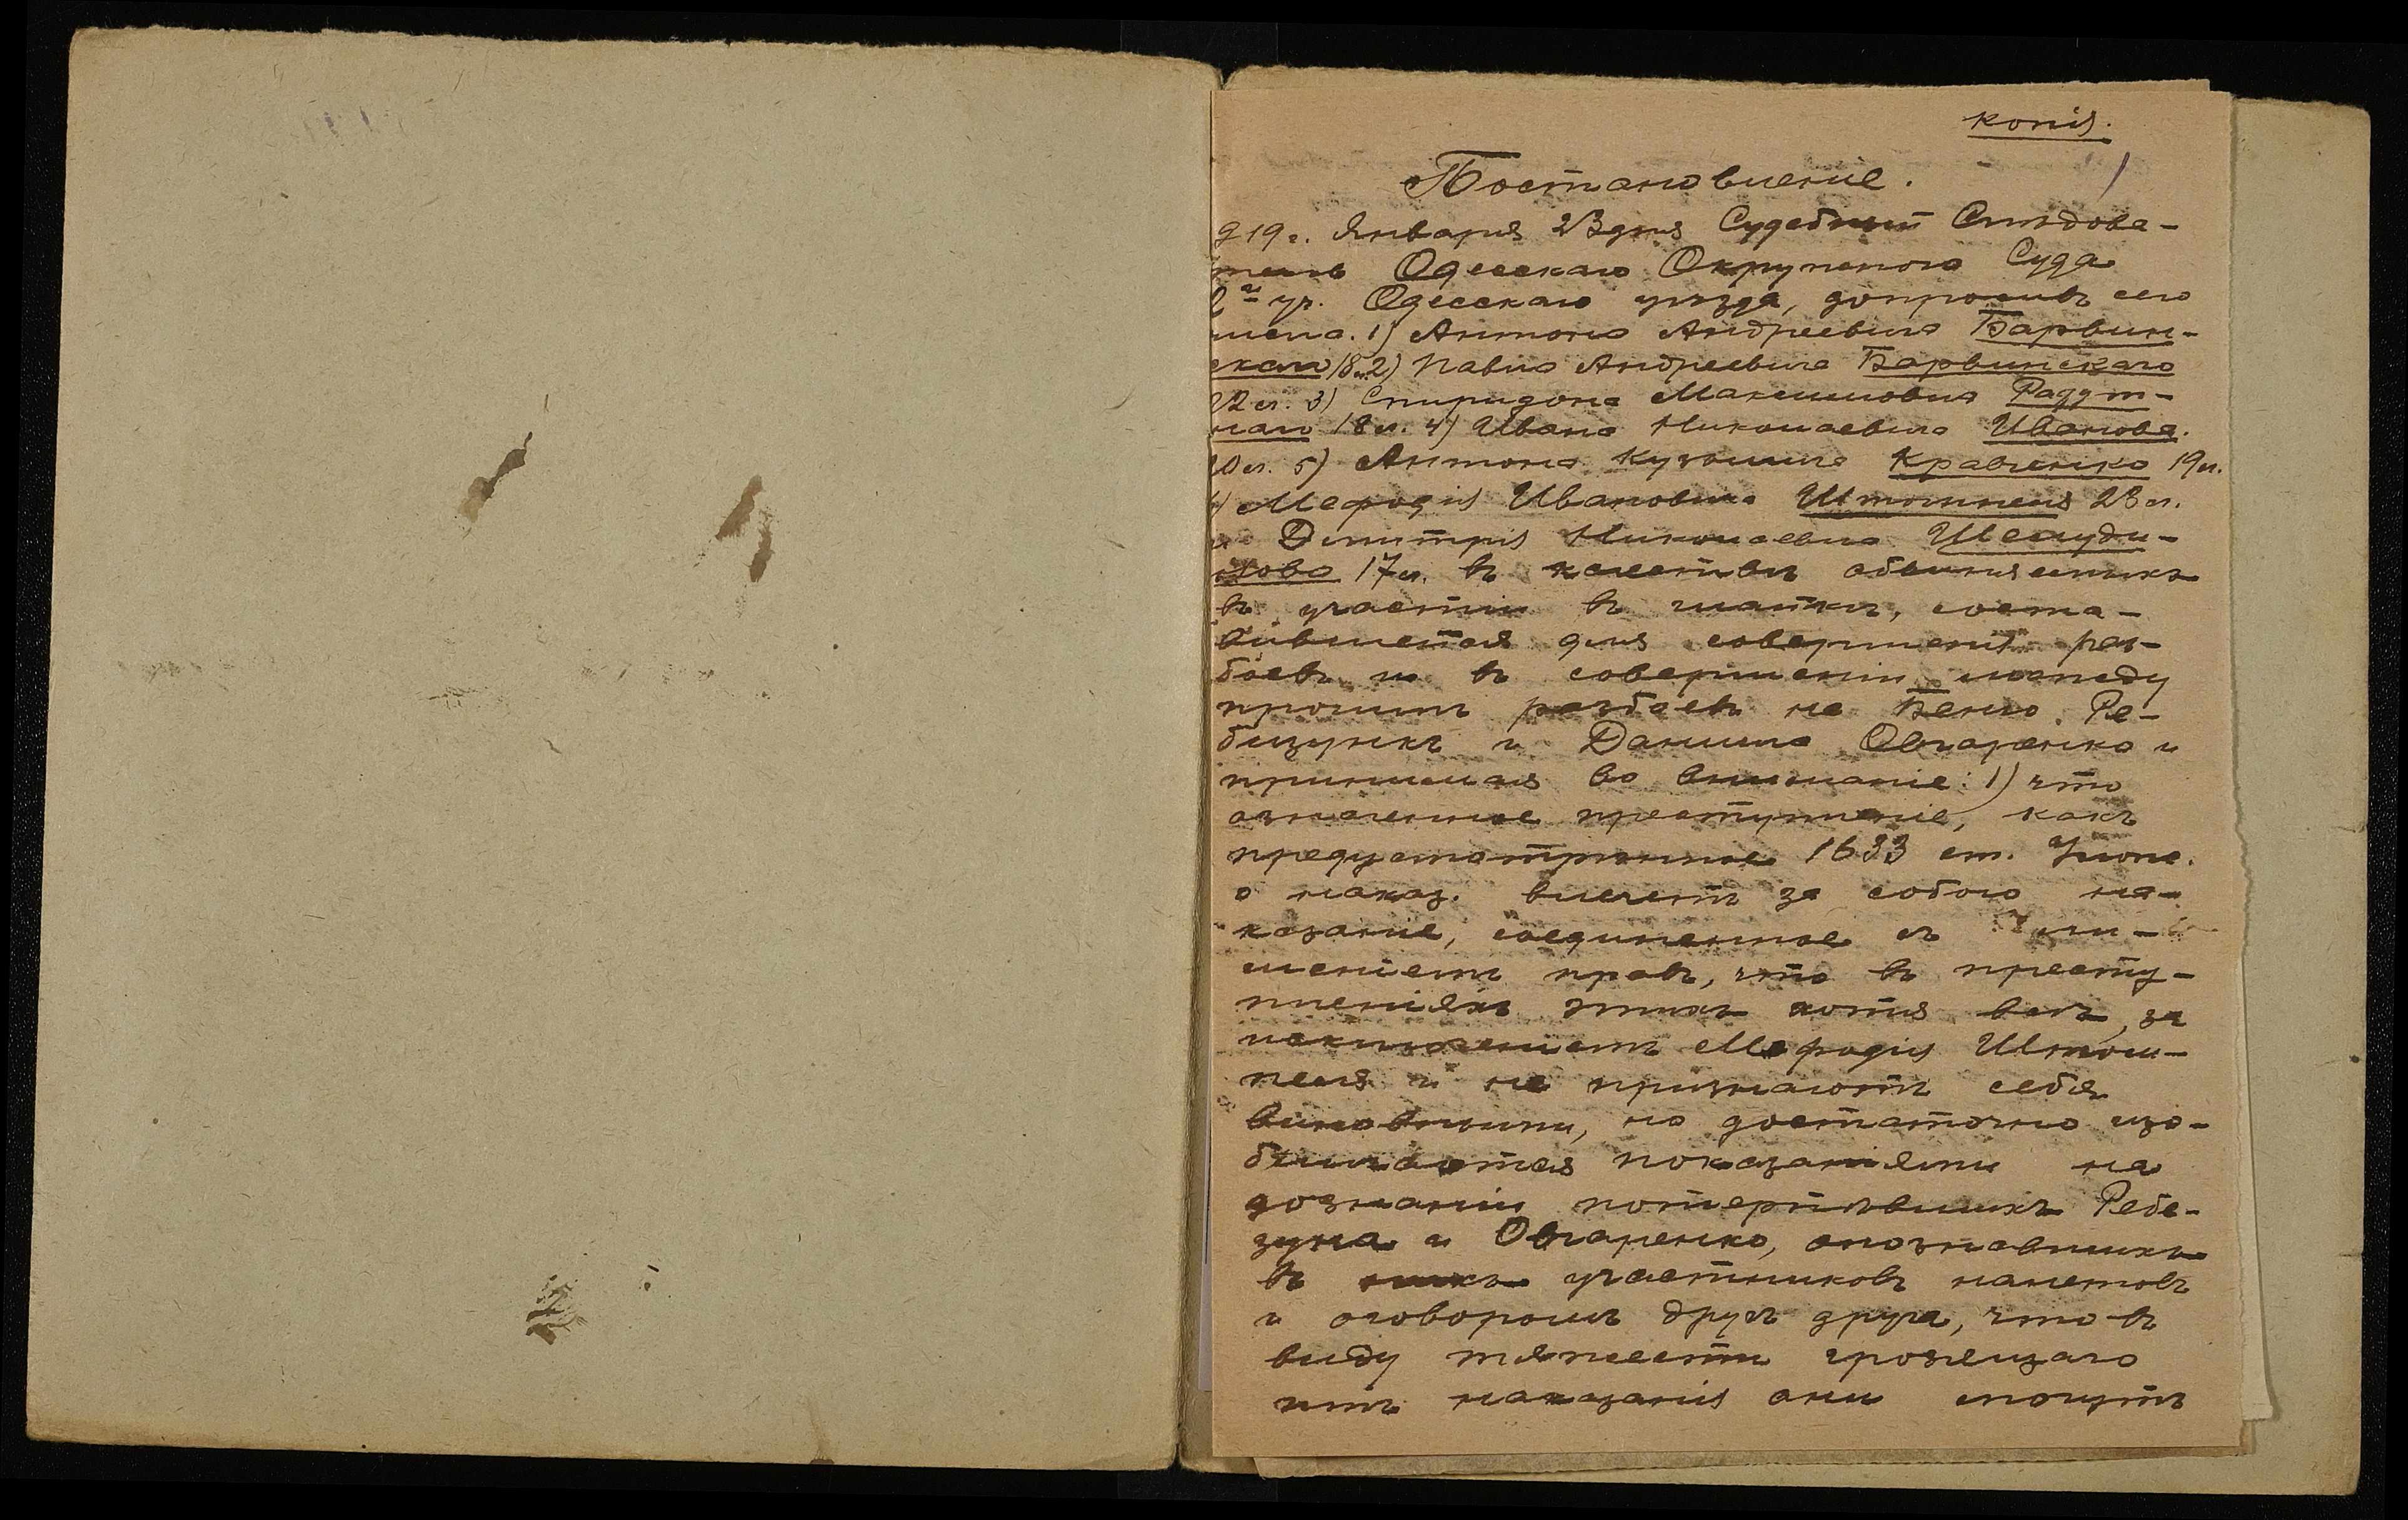 копія.
1
Постановленіе.
919 г. Января 23 дня Судебный Слѣдова-
тель Одесскаго Окружного Суда
2го уч. Одесскаго уѣзда, допросивъ сего
числа. 1) Антона Андреевича Барвин-
скаго 18 л. 2) Павла Андреевича Барвинскаго
22 л. 3) Спиридона Максимовича Радут-
наго 18 л. 4) Ивана Николаевича Иванова.
20 л. 5) Антона Кузьмича Кравченко 19 л.
6) Мефодія Ивановича Штомпеля 23 л.
и Димитрія Николаевича Шелуди-
кова 17 л. въ качествѣ обвиняемыхъ
въ участіи въ шайкѣ, соста-
вившейся для совершенія раз-
боевъ и въ совершеніи между
прочимъ разбоевъ на Бенцо Ре-
бизунъ и Данила Овчаренко и
принимая во вниманіе: 1) что
означенное преступленіе, какъ
предусмотрѣнное 1633 ст. Улож.
о наказ. влечетъ за собою на-
казаніе, соединенное съ ли-
шеніемъ правъ, что въ престу-
пленіяхъ этихъ хотя всѣ, за
исключеніемъ Мефодія Штом-
пеля и не признаютъ себя
виновными, но достаточно изо-
бличаются показаніями на
дознаніи потерпѣвшихъ Ребе-
зуна и Овчаренко, опознавшихъ
въ нихъ участниковъ налетовъ
и оговоромъ другъ друга, что въ
виду тяжести грозящаго
имъ наказанія они могутъ